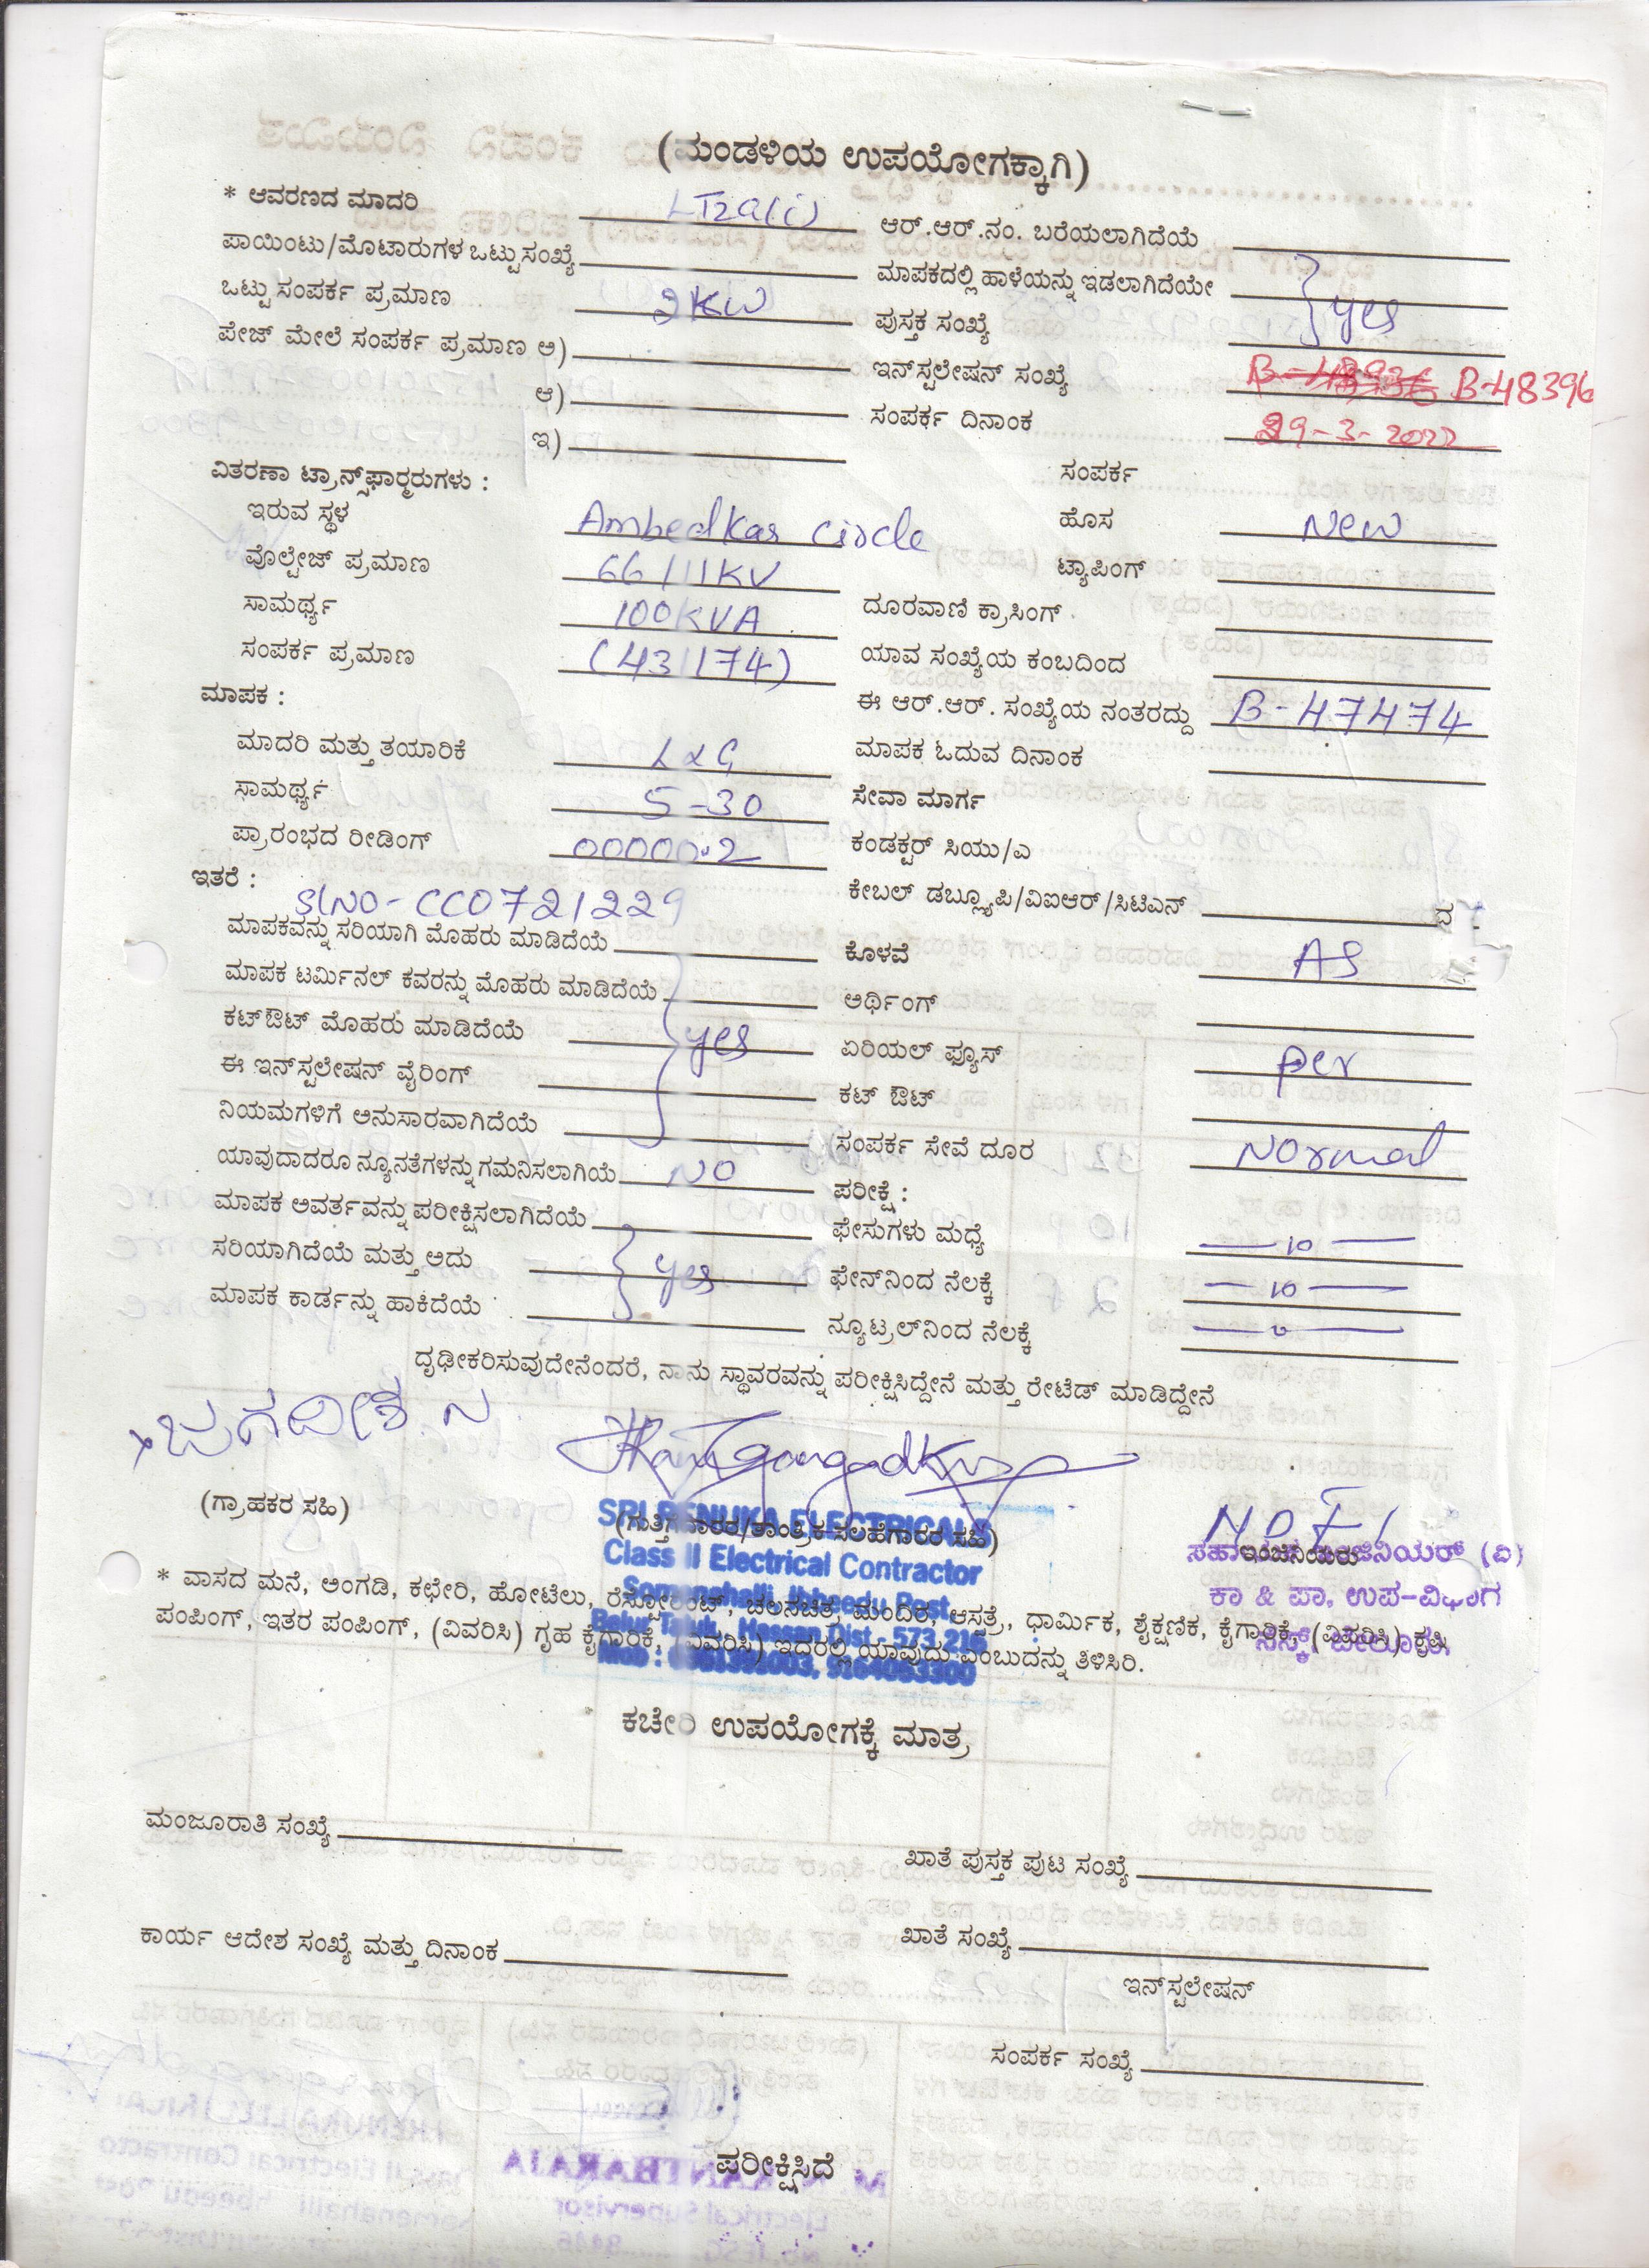 (ಮಂಡಳಿಯ ಉಪಯೋಗಕ್ಕಾಗಿ)
* ಆವರಣದ ಮಾದರಿ LT2a(i)
ಪಾಯಿಂಟು/ಮೊಟಾರುಗಳ ಒಟ್ಟು ಸಂಖ್ಯೆ
ಒಟ್ಟು ಸಂಪರ್ಕ ಪ್ರಮಾಣ 2KW
ಪೇಜ್ ಮೇಲೆ ಸಂಪರ್ಕ ಪ್ರಮಾಣ ಅ)
ಆ)
ಇ)
ವಿತರಣಾ ಟ್ರಾನ್ಸ್‌ಫಾರ್‍ಮರುಗಳು :
ಇರುವ ಸ್ಥಳ Ambedkar Circle
ವೊಲ್ಟೇಜ್ ಪ್ರಮಾಣ 66/11KV
ಸಾಮರ್ಥ್ಯ 100KVA
ಸಂಪರ್ಕ ಪ್ರಮಾಣ (431174)
ಮಾಪಕ :
ಮಾದರಿ ಮತ್ತು ತಯಾರಿಕೆ L&G
ಸಾಮರ್ಥ್ಯ 5-30
ಪ್ರಾರಂಭದ ರೀಡಿಂಗ್ 00000.2
ಇತರೆ :
SlNO-CC0721229
ಮಾಪಕವನ್ನು ಸರಿಯಾಗಿ ಮೊಹರು ಮಾಡಿದೆಯೆ
ಮಾಪಕ ಟರ್ಮಿನಲ್ ಕವರನ್ನು ಮೊಹರು ಮಾಡಿದೆಯೆ
ಕಟ್‌ಔಟ್ ಮೊಹರು ಮಾಡಿದೆಯೆ yes
ಈ ಇನ್‌ಸ್ಟಲೇಷನ್ ವೈರಿಂಗ್
ನಿಯಮಗಳಿಗೆ ಅನುಸಾರವಾಗಿದೆಯೆ
ಯಾವುದಾದರೂ ನ್ಯೂನತೆಗಳನ್ನು ಗಮನಿಸಲಾಗಿಯೆ NO
ಮಾಪಕ ಅವರ್ತವನ್ನು ಪರೀಕ್ಷಿಸಲಾಗಿದೆಯೆ
ಸರಿಯಾಗಿದೆಯೆ ಮತ್ತು ಅದು yes
ಮಾಪಕ ಕಾರ್ಡನ್ನು ಹಾಕಿದೆಯೆ
ಆರ್.ಆರ್.ನಂ. ಬರೆಯಲಾಗಿದೆಯೆ
ಮಾಪಕದಲ್ಲಿ ಹಾಳೆಯನ್ನು ಇಡಲಾಗಿದೆಯೇ yes
ಪುಸ್ತಕ ಸಂಖ್ಯೆ
ಇನ್‌ಸ್ಟಲೇಷನ್ ಸಂಖ್ಯೆ B-48396
ಸಂಪರ್ಕ ದಿನಾಂಕ 29-3-2022
ಸಂಪರ್ಕ
ಹೊಸ New
ಟ್ಯಾಪಿಂಗ್
ದೂರವಾಣಿ ಕ್ರಾಸಿಂಗ್
ಯಾವ ಸಂಖ್ಯೆಯ ಕಂಬದಿಂದ
ಈ ಆರ್.ಆರ್. ಸಂಖ್ಯೆಯ ನಂತರದ್ದು B-47474
ಮಾಪಕ ಓದುವ ದಿನಾಂಕ
ಸೇವಾ ಮಾರ್ಗ
ಕಂಡಕ್ಟರ್ ಸಿಯು/ಎ
ಕೇಬಲ್ ಡಬ್ಲ್ಯೂಪಿ/ವಿಐಆರ್/ಸಿಟಿಎನ್ ದ
ಕೊಳವೆ AS
ಅರ್ಥಿಂಗ್
ಏರಿಯಲ್ ಫ್ಯೂಸ್ per
ಕಟ್ ಔಟ್
ಸಂಪರ್ಕ ಸೇವೆ ದೂರ Normal
ಪರೀಕ್ಷೆ :
ಫೇಸುಗಳು ಮಧ್ಯೆ — 10 —
ಫೇನ್‌ನಿಂದ ನೆಲಕ್ಕೆ — 10 —
ನ್ಯೂಟ್ರಲ್‌ನಿಂದ ನೆಲಕ್ಕೆ — 0 —
ದೃಢೀಕರಿಸುವುದೇನೆಂದರೆ, ನಾನು ಸ್ಥಾವರವನ್ನು ಪರೀಕ್ಷಿಸಿದ್ದೇನೆ ಮತ್ತು ರೇಟೆಡ್ ಮಾಡಿದ್ದೇನೆ
ಜಗದೀಶ. ನ
(ಗ್ರಾಹಕರ ಸಹಿ)
(ಗುತ್ತಿಗೆದಾರರ/ತಾಂತ್ರಿಕ ಸಲಹೆಗಾರರ ಸಹಿ)
SRI RENUKA ELECTRICALS
Class II Electrical Contractor
Somenahalli, Ibbeedu Post,
Belur Taluk, Hassan Dist - 573 216
ಇಂಜಿನಿಯರು
ಸಹಾಯಕ ಇಂಜಿನಿಯರ್ (ವಿ)
ಕಾ & ಪಾ, ಉಪ-ವಿಭಾಗ
* ವಾಸದ ಮನೆ, ಅಂಗಡಿ, ಕಛೇರಿ, ಹೋಟೆಲು, ರೆಸ್ಟೋರೆಂಟ್, ಚಲನಚಿತ್ರ, ಮಂದಿರ, ಆಸ್ಪತ್ರೆ, ಧಾರ್ಮಿಕ, ಶೈಕ್ಷಣಿಕ, ಕೈಗಾರಿಕೆ, (ವಿವರಿಸಿ) ಕೃಷಿ
ಪಂಪಿಂಗ್, ಇತರ ಪಂಪಿಂಗ್, (ವಿವರಿಸಿ) ಗೃಹ ಕೈಗಾರಿಕೆ, (ವಿವರಿಸಿ) ಇದರಲ್ಲಿ ಯಾವುದು ಎಂಬುದನ್ನು ತಿಳಿಸಿರಿ.
ಕಚೇರಿ ಉಪಯೋಗಕ್ಕೆ ಮಾತ್ರ
ಮಂಜೂರಾತಿ ಸಂಖ್ಯೆ
ಖಾತೆ ಪುಸ್ತಕ ಪುಟ ಸಂಖ್ಯೆ
ಕಾರ್ಯ ಆದೇಶ ಸಂಖ್ಯೆ ಮತ್ತು ದಿನಾಂಕ
ಖಾತೆ ಸಂಖ್ಯೆ
ಇನ್‌ಸ್ಟಲೇಷನ್
ಸಂಪರ್ಕ ಸಂಖ್ಯೆ
ಪರೀಕ್ಷಿಸಿದೆ